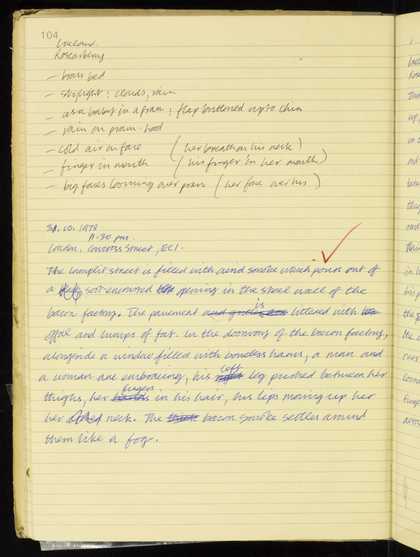 104
Ireland.
Rosenberg
— brass bed
— skylight : clouds, rain
— as a baby in a pram : flap buttoned up to chin
— rain on pram-hood
— cold air on face ( her breath on his neck )
— finger in mouth ( his finger in her mouth )
— big faces looming over pram ( her face over his )
31. 10. 1978
11.30 pm.
London. Street, EC1.
The lamplit street is filled with acrid smoke which pours out of
a soot-encrusted opening in the steel wall of the
bacon factory. The pavement is littered with
offal and lumps of fat. In the doorway of the bacon factory,
alongside a window filled with boneless hams, a man and
a woman are embracing, his left leg pushed between her
thighs, her fingers in his hair, his lips moving up her
her arched neck. The bacon smoke settles around
them like a fog.